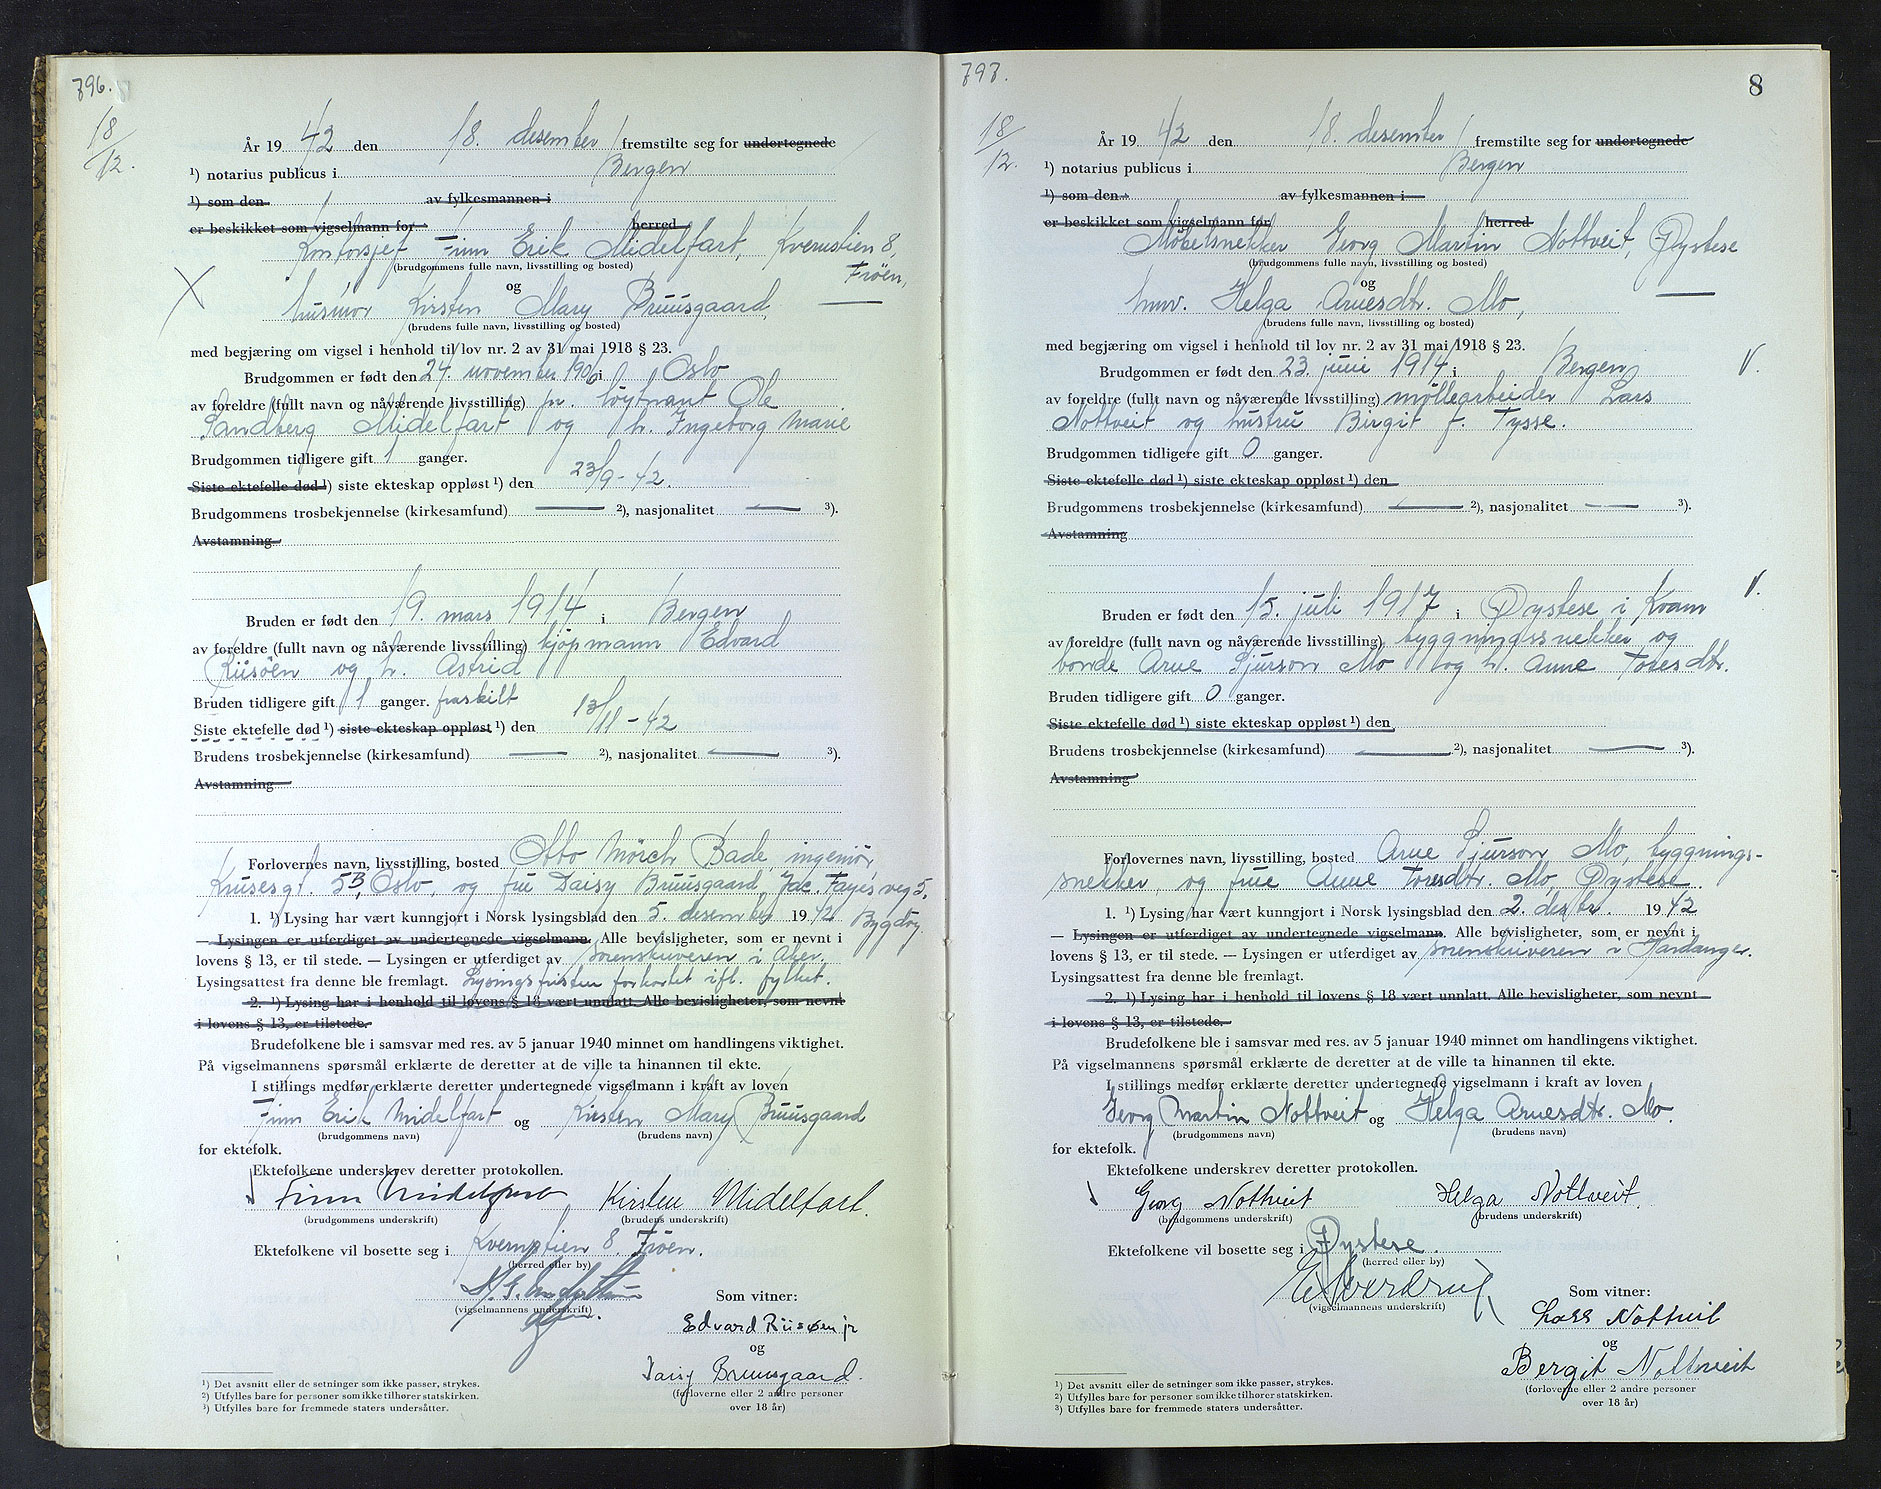 796.
18/12
År 19 42 den 18. desember fremstilte seg for undertegnede
¹) notarius publicus i Bergen
¹) som den av fylkesmannen i
er beskikket som vigselmann for herred
Kontorsjef Finn Erik Midelfart, Kvernstien 8,
Frøen,
(brudgommens fulle navn, livsstilling og bosted)
og
husmor Kirsten Mary Bruusgaard,
(brudens fulle navn, livsstilling og bosted)
med begjæring om vigsel i henhold til lov nr. 2 av 31 mai 1918 § 23.
Brudgommen er født den 24. november 1906 i Oslo
av foreldre (fullt navn og nåværende livsstilling) pr. løytnant Ole
Sandberg Midelfart og h. Ingeborg Marie
Brudgommen tidligere gift 1 ganger.
Siste ektefelle død ¹) siste ekteskap oppløst ¹) den 23/9-42.
Brudgommens trosbekjennelse (kirkesamfund) ²), nasjonalitet ³).
Avstamning
Bruden er født den 19. mars 1914 i Bergen
av foreldre (fullt navn og nåværende livsstilling) kjøpmann Edvard
Riisøen og h. Astrid
Bruden tidligere gift 1 ganger. fraskilt
Siste ektefelle død ¹) siste ekteskap oppløst ¹) den 13/11-42
Brudens trosbekjennelse (kirkesamfund) ²), nasjonalitet ³).
Avstamning
Forlovernes navn, livsstilling, bosted Otto Mörch Bade, ingeniör,
Krusesgt. 5B, Oslo, og frue Daisy Bruusgaard, Jac. Fayesveg 5,
Bygdøy.
1. ¹) Lysing har vært kunngjort i Norsk lysingsblad den 5. desember 1942
— Lysingen er utferdiget av undertegnede vigselmann. Alle bevisligheter, som er nevnt i
lovens § 13, er til stede. — Lysingen er utferdiget av sorenskriveren i Aker.
Lysingsattest fra denne ble fremlagt. Lysingsfristen forkortet ifl. fylket.
2. ¹) Lysing har i henhold til lovens § 18 vært unnlatt. Alle bevisligheter, som nevnt
i lovens § 13, er tilstede.
Brudefolkene ble i samsvar med res. av 5 januar 1940 minnet om handlingens viktighet.
På vigselmannens spørsmål erklærte de deretter at de ville ta hinannen til ekte.
I stillings medfør erklærte deretter undertegnede vigselmann i kraft av loven
Finn Erik Midelfart og Kirsten Mary Bruusgaard
(brudgommens navn) (brudens navn)
for ektefolk.
Ektefolkene underskrev deretter protokollen.
Finn Midelfart Kirsten Midelfart.
(brudgommens underskrift) (brudens underskrift)
Ektefolkene vil bosette seg i Kvernstien 8. Frøen.
(herred eller by)
(vigselmannens underskrift)
Som vitner:
Edvard Riisøen jr
og
Daisy Bruusgaard.
(forloverne eller 2 andre personer
over 18 år)
¹) Det avsnitt eller de setninger som ikke passer, strykes.
²) Utfylles bare for personer som ikke tilhører statskirken.
³) Utfylles bare for fremmede staters undersåtter.
797.
8
18/12.
År 19 42 den 18. desember fremstilte seg for undertegnede
¹) notarius publicus i Bergen
¹) som den av fylkesmannen i
er beskikket som vigselmann for herred
Møbelsnekker Georg Martin Nottveit, Øystese
(brudgommens fulle navn, livsstilling og bosted)
og
hmv. Helga Arnesdtr. Mo,
(brudens fulle navn, livsstilling og bosted)
med begjæring om vigsel i henhold til lov nr. 2 av 31 mai 1918 § 23.
Brudgommen er født den 23. juni 1914 i Bergen
av foreldre (fullt navn og nåværende livsstilling) møllearbeider Lars
Nottveit og hustru Birgit f. Tysse.
Brudgommen tidligere gift 0 ganger.
Siste ektefelle død ¹) siste ekteskap oppløst ¹) den
Brudgommens trosbekjennelse (kirkesamfund) ²), nasjonalitet ³).
Avstamning
Bruden er født den 15. juli 1917 i Øystese i Kvam
av foreldre (fullt navn og nåværende livsstilling) byggningssnekker og
bonde Arne Sjurson Mo og h. Anne Toresdtr.
Bruden tidligere gift 0 ganger.
Siste ektefelle død ¹) siste ekteskap oppløst ¹) den
Brudens trosbekjennelse (kirkesamfund) ²), nasjonalitet ³).
Avstamning
Forlovernes navn, livsstilling, bosted Arne Sjurson Mo, byggnings-
snekker, og frue Anne Toresdtr. Mo, Øystese
1. ¹) Lysing har vært kunngjort i Norsk lysingsblad den 2. desbr. 1942
— Lysingen er utferdiget av undertegnede vigselmann. Alle bevisligheter, som er nevnt i
lovens § 13, er til stede. — Lysingen er utferdiget av sorenskriveren i Hardanger.
Lysingsattest fra denne ble fremlagt.
2. ¹) Lysing har i henhold til lovens § 18 vært unnlatt. Alle bevisligheter, som nevnt
i lovens § 13, er tilstede.
Brudefolkene ble i samsvar med res. av 5 januar 1940 minnet om handlingens viktighet.
På vigselmannens spørsmål erklærte de deretter at de ville ta hinannen til ekte.
I stillings medfør erklærte deretter undertegnede vigselmann i kraft av loven
Georg Martin Nottveit og Helga Arnesdtr. Mo.
(brudgommens navn) (brudens navn)
for ektefolk.
Ektefolkene underskrev deretter protokollen.
Georg Nottveit Helga Nottveit.
(brudgommens underskrift) (brudens underskrift)
Ektefolkene vil bosette seg i Øystese.
(herred eller by)
E. Sverdrup
(vigselmannens underskrift)
Som vitner:
Lars Nottveit
og
Bergit Nottveit
(forloverne eller 2 andre personer
over 18 år)
¹) Det avsnitt eller de setninger som ikke passer, strykes.
²) Utfylles bare for personer som ikke tilhører statskirken.
³) Utfylles bare for fremmede staters undersåtter.